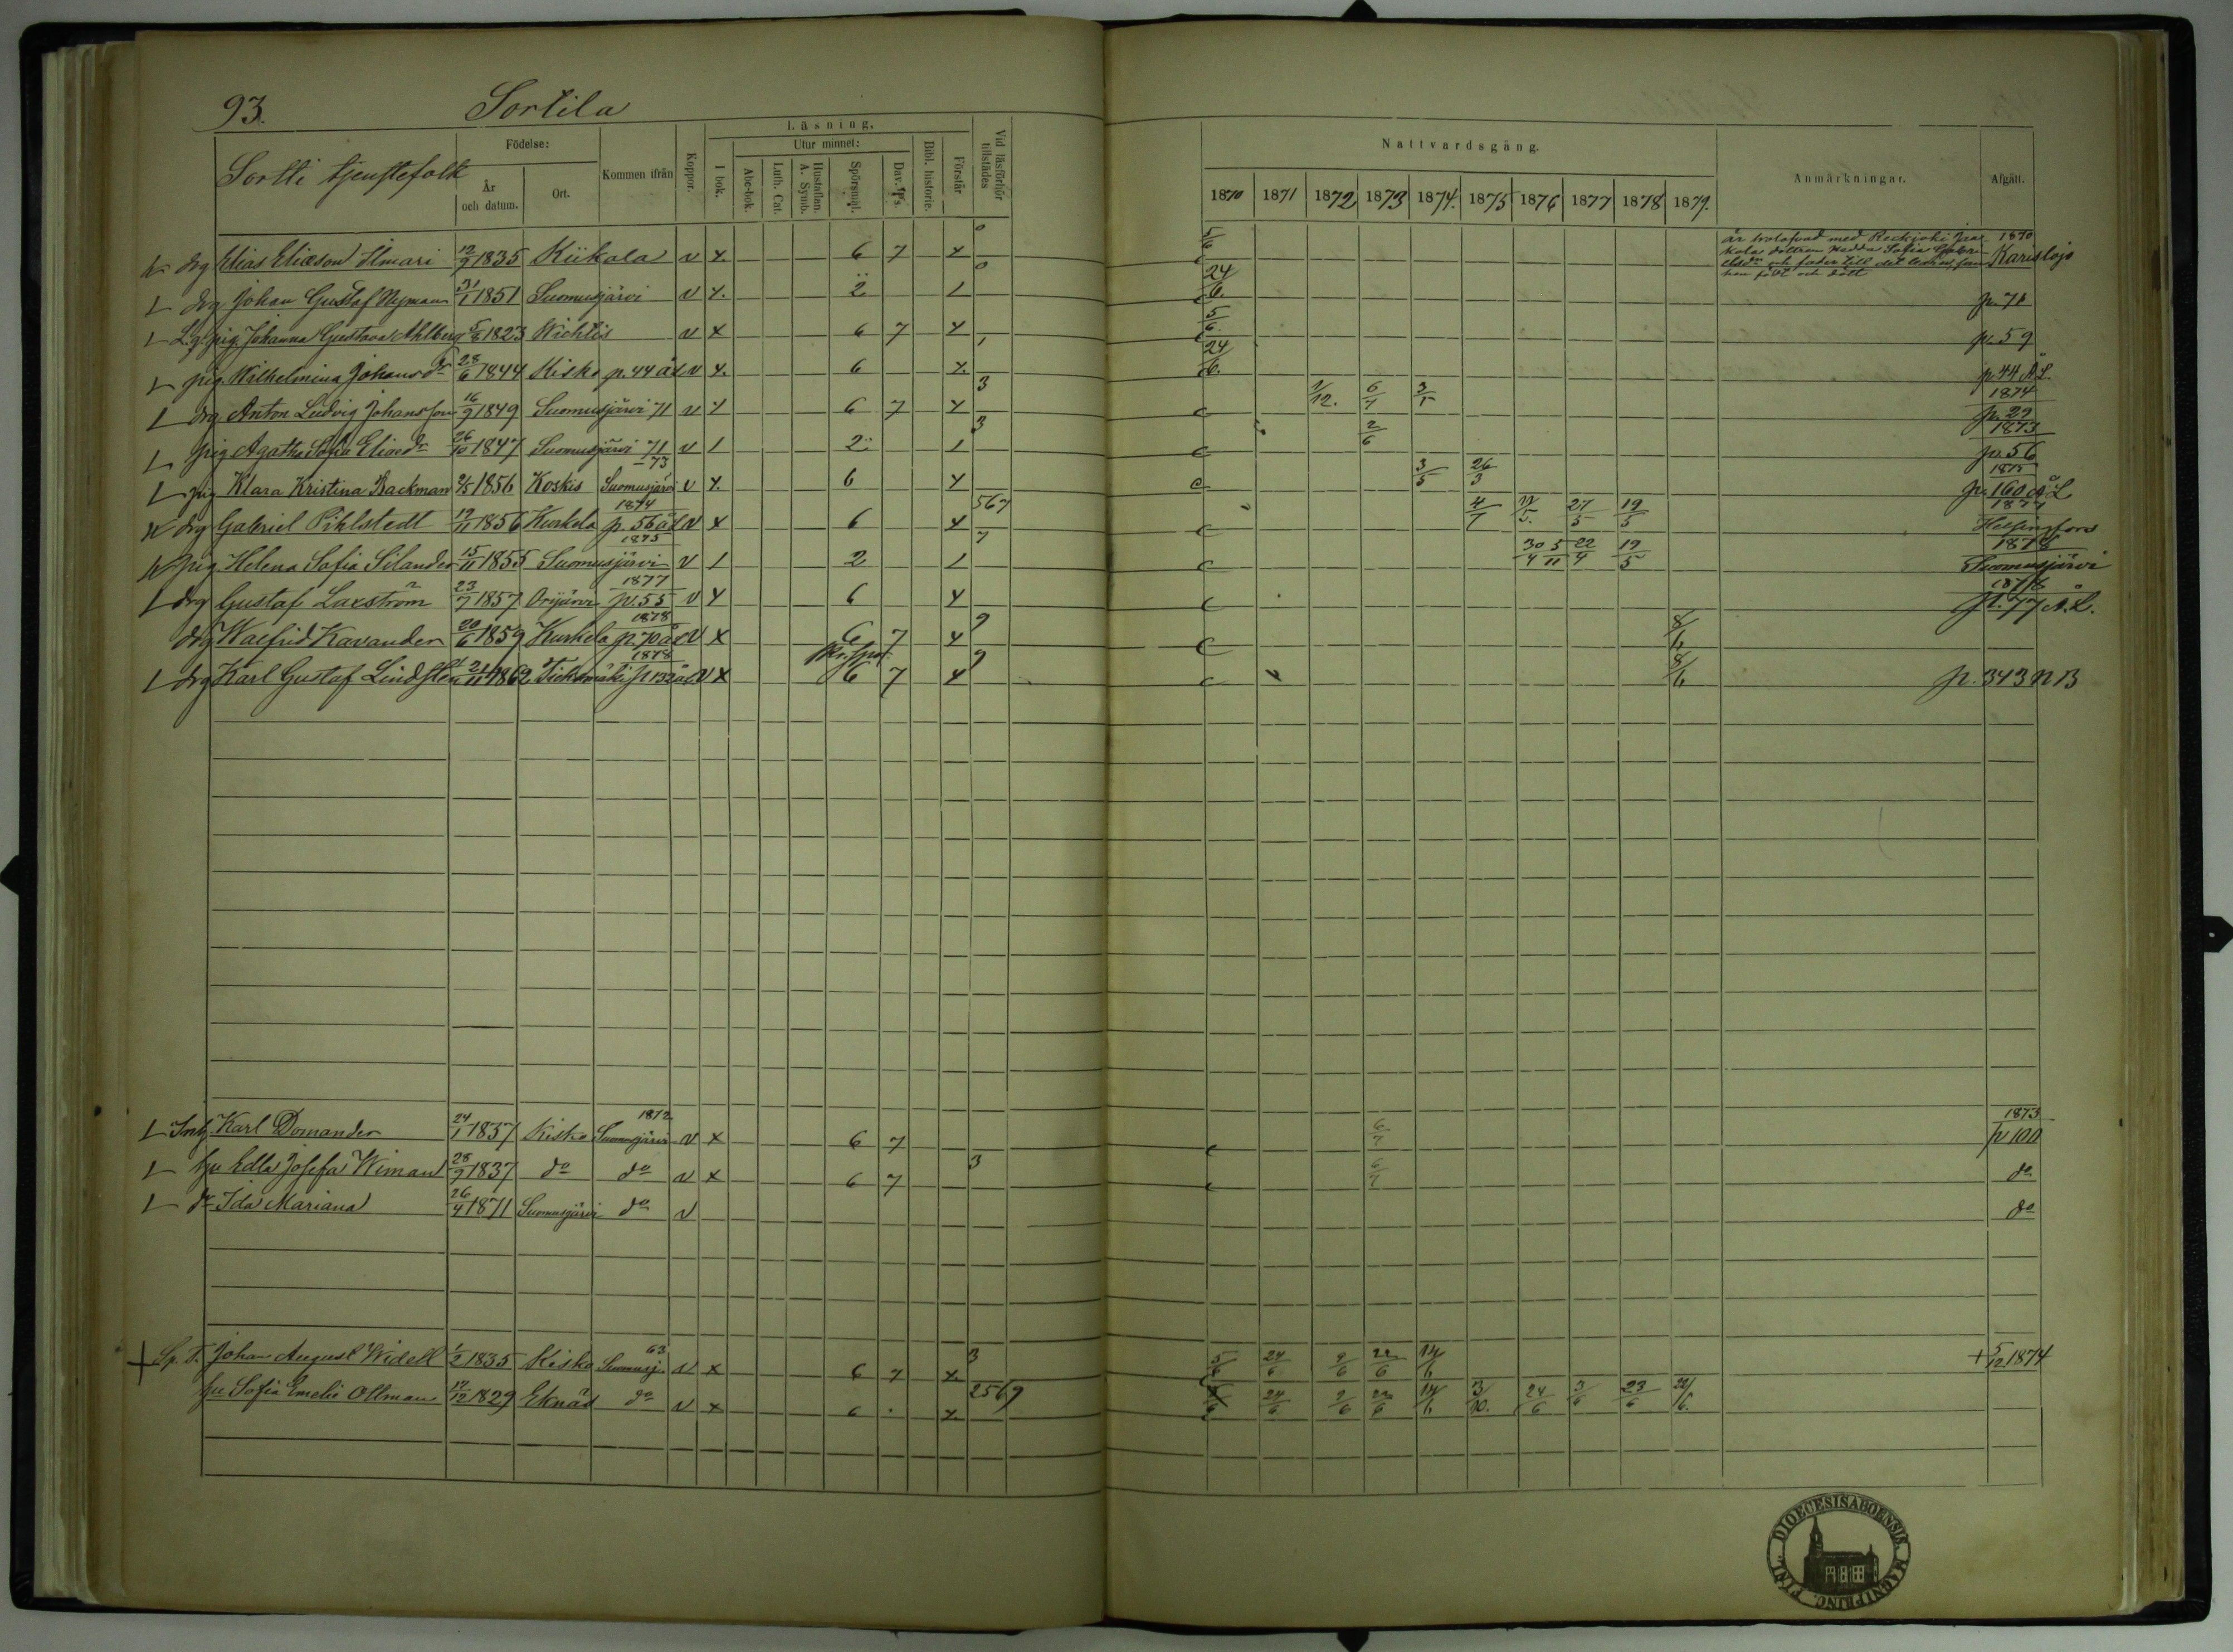 93. Sortila
Sortti tjenstefolk
Födelse: År och datum. Ort.
Kommen ifrån
Koppor.
Läsning.
I bok.
Utur minnet:
Abc-bok. Luth. Cat. Hustaflan. A. Symb. Spörsmål. Dav. Ps.
Bibl. historie. Förstår
Vid läsförhör tillstädes
Nattvardsgång.
1870 1871 1872 1873 1874. 1875 1876 1877 1878 1879.
Anmärkningar. Afgått.
drg Elias Eliasson Ilmari 12/9 1835 Kiikala v x. 6 7 x 0 5/6 är trolofvad med 1870 Karislojo
drg Johan Gustaf Nyman 31/1 1851 Suomusjärvi v x. 2 1 0 24/6. p. 71
L.g. pig. Johanna Gustava Ahlberg 5/8 1823 Wichtis v x 6 7 x 5/6. p. 59
pig. Wilhelmina Johansdr 28/6 1844 Kisko p. 44 ÅL v x. 6 x. 24/6. p. 44 ÅL
drg Anton Ludvig Johansson 16/9 1849 Suomusjärvi 71 v x 6 7 x 3 1/12. 6/7 3/5 1874 p. 29
pig Agatha Sofia Eliædr 26/10 1847 Suomusjärvi 71 v 1 2 1 3 2/6 1873 p. 56
pig Klara Kristina Backman 2/5 1856 Koskis 73 Suomusjärvi v x. 6 x 3/5 26/3 1875 p. 160 ÅL
drg Gabriel Pihlstedt 19/11 1856 Kurkela 1874 p. 56 ÅL v x 6 x 567 4/7 27/5 19/5 1877 Helsingfors
pig Helena Sofia Silander 15/11 1855 Suomusjärvi 1875 v 1 2 1 7 30/4 5/11 22/4 19/5 1878 Suomusjärvi
drg Gustaf Laxström 23/7 1857 Orijärvi 1877 p. 55 v x 6 x 1878 p. 77 Å.L.
drg Walfrid Kavander 20/6 1859 Kurkela 1878 p. 70 ÅL v x 6 7 x 9 8/6
drg Karl Gustaf Lindsten 21/11 1862 1878 p 132 ÅL v x 6 7 x 9 8/6 p. 343 N B
Karl Domander 24/1 1837 Kisko 1872 Suomusjärvi v x 6 7 6/7 1873 p 100
hu Edla Josefa Wiman 28/9 1837 do do v x 6 7 3 6/7 do
dr Ida Mariana 26/4 1871 Suomusjärvi do v do
+ Sp. T. Johan August Widell 1/2 1835 Kisko 63 Suomusj. v x 6 7 x 3 5/6 24/6 9/6 22/6 14/6 + 5/12 1874
hu Sofia Emelie Ollman 17/12 1829 Eknäs do v x 6 x 2569 24/6 9/6 22/6 14/6 3/10. 24/6 3/6 23/6 22/6.
DIOECESIS ABOENSIS. MAGNI PRINC. FINL.